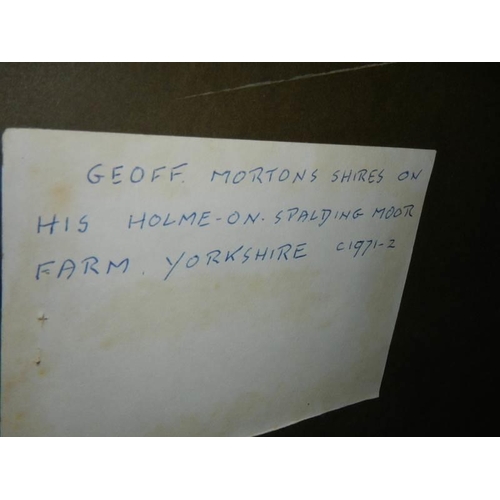 GEOFF. MORTONS SHIRES ON
HIS HOLME-ON-SPALDING MOOR
FARM. YORKSHIRE C1971-2